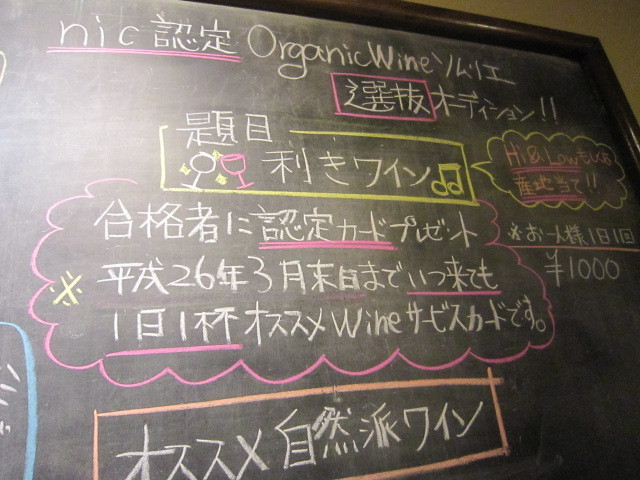 nic認定 OrganicWineソムリエ
選抜オーディション!!
題目
利きワイン
Hi&Lowもしくは
産地当て!!
合格者に認定カードプレゼント
※お一人様1日1回
¥1000
※平成26年3月末日までいつ来ても
1日1杯オススメWineサービスカードです。
オススメ自然派ワイン